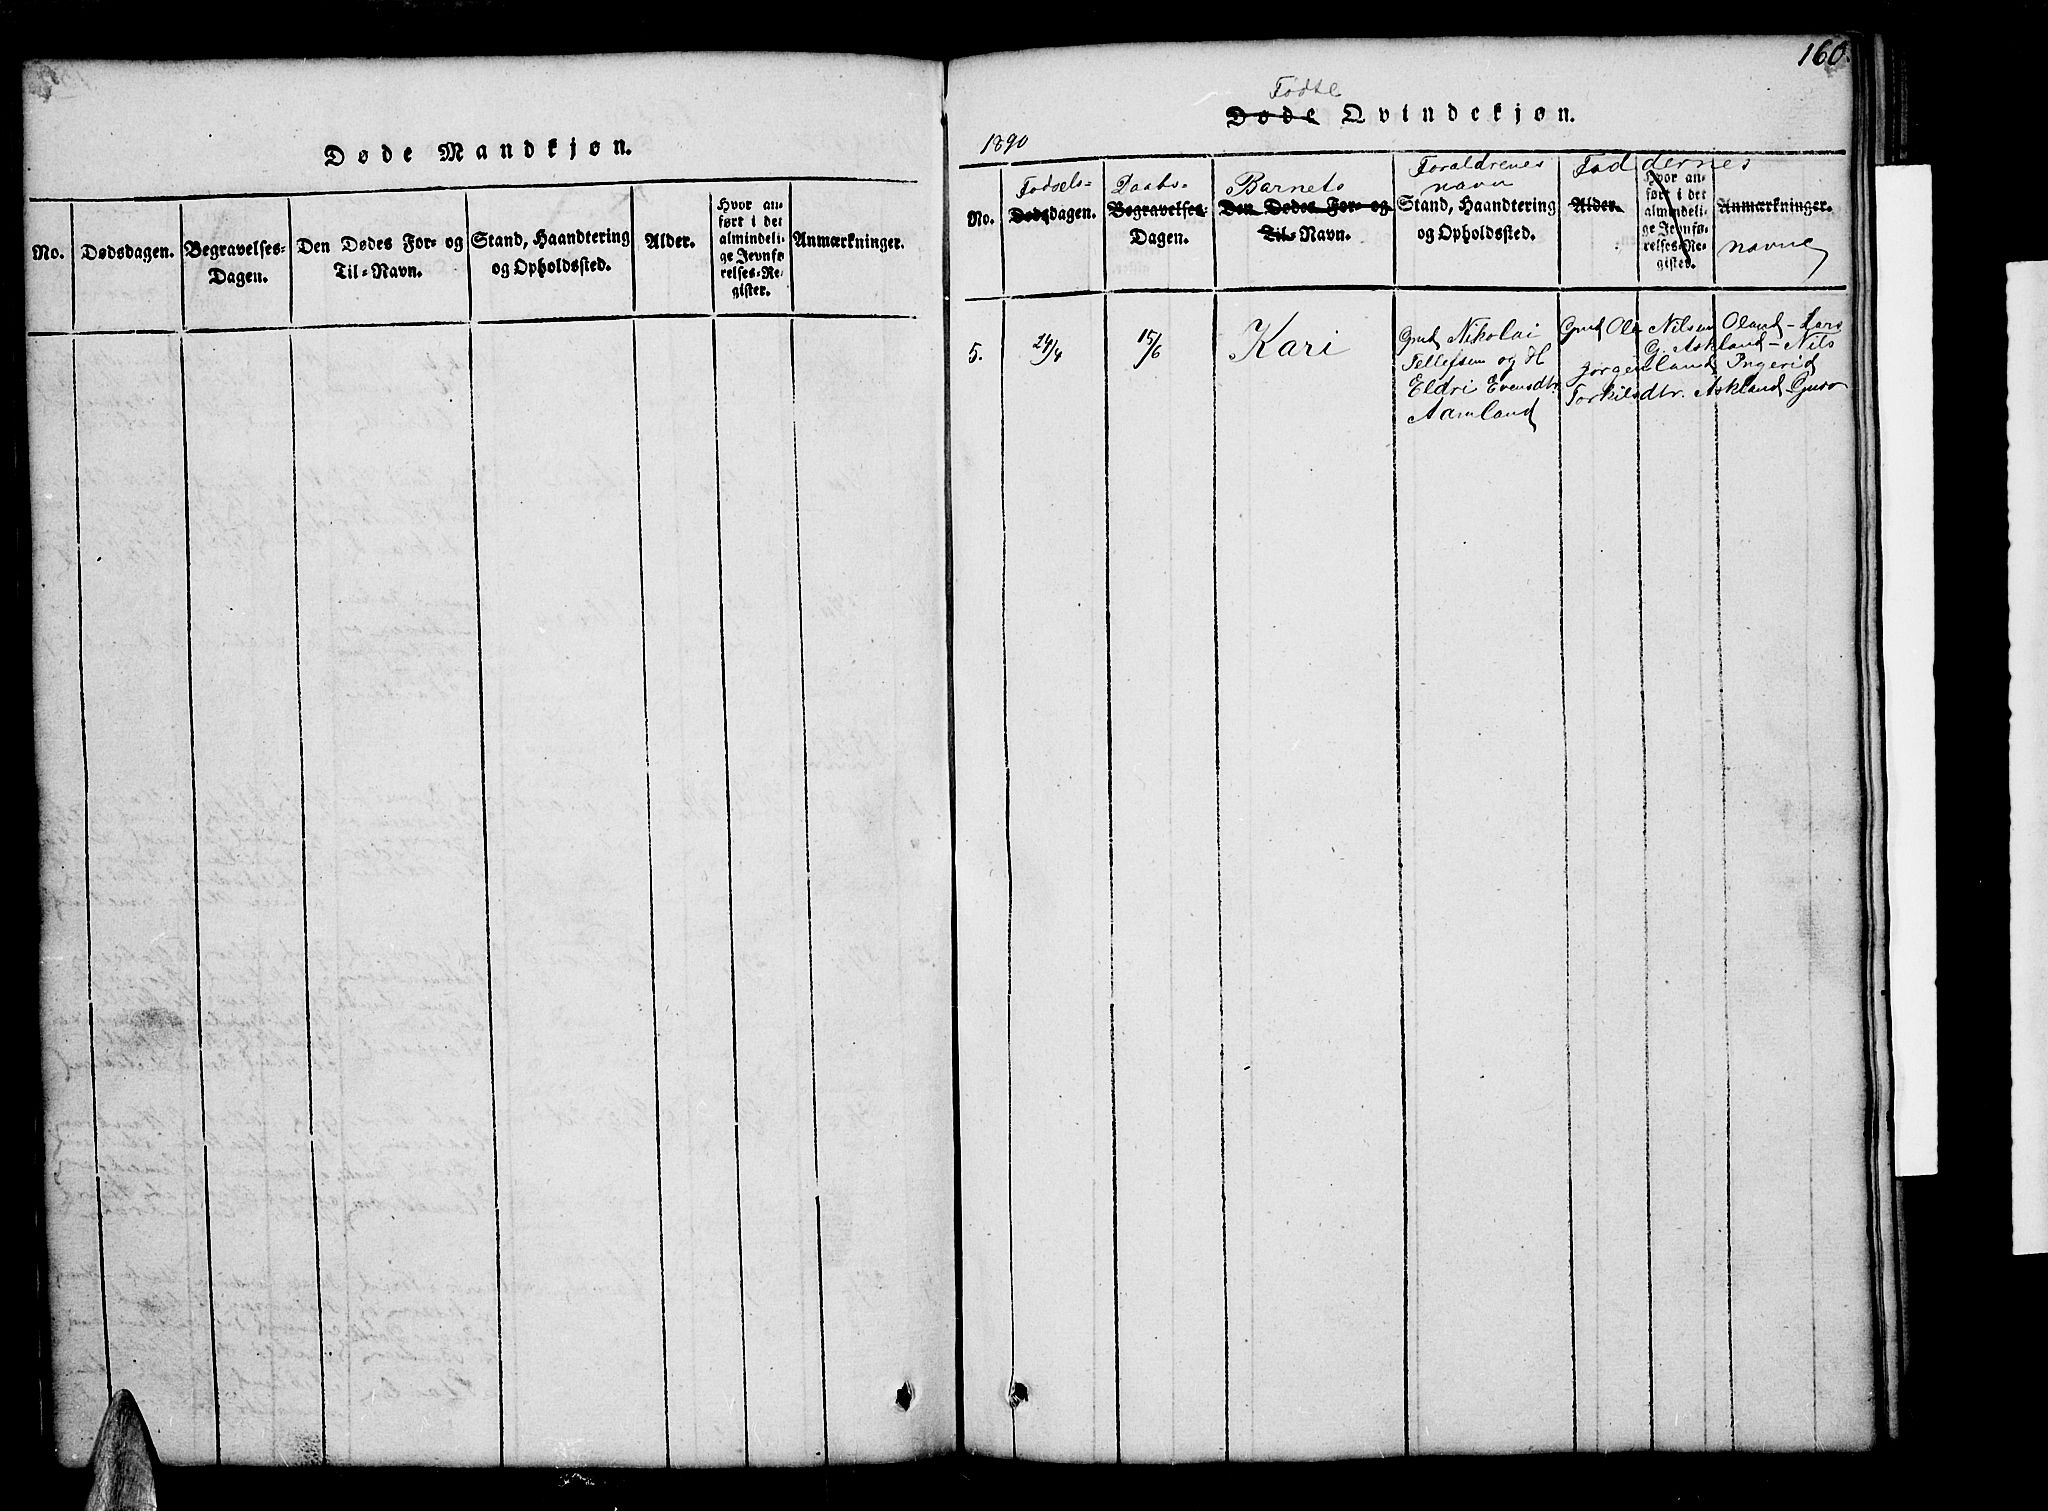 Døde Mandkjøn.
No.
Dødsdagen.
Begravelses-
Dagen.
Den Dødes For- og
Til-Navn.
Stand, Haandtering
og Opholdssted.
Alder.
Hvor an-
ført i det
almindeli-
ge Jevnfø-
relses-Re-
gister.
Anmærkninger.
160.
Fødte
Døde Qvindekjøn.
1890
No.
Fødsels-
Dødsdagen.
Daabs-
Begravelses-
Dagen.
Barnets
Den Dødes For- og
Til-Navn.
Foraldrenes
navn
Stand, Haandtering
og Opholdssted.
Fad
Alder.
dernes
Hvor an-
ført i det
almindeli-
ge Jevnfø-
relses-Re-
gister.
Anmærkninger.
navne
5.
24/4
15/6
Kari
Gmd Nikolai
Tellefsen og H
Eldri Evensdtr.
Aamland
Gmd Ole Nilsen Oland - Lars
G. Askland - Nils
Jörgensland, Ingerid
Torkilsdtr. Askland - Guro